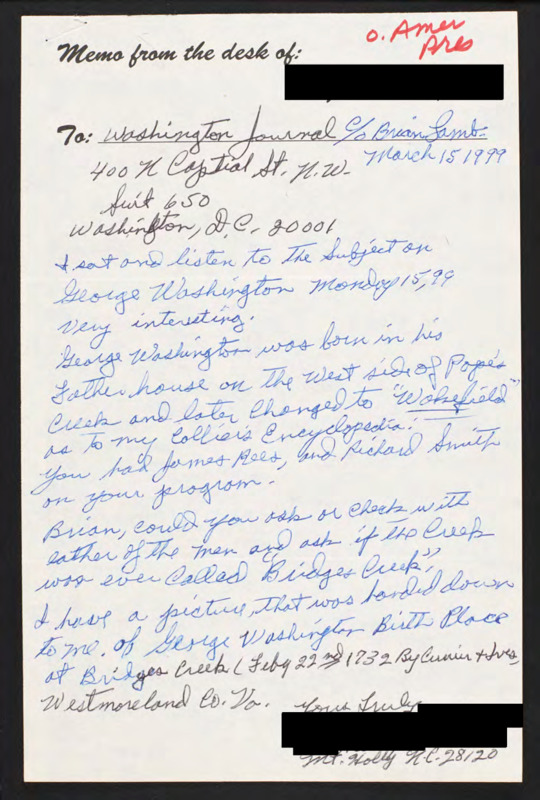 O. Amer
Pres
Memo from the desk of:
To: Washington Journal C/o Brian Lamb.
March 15 1999
400 N Captial St. N.W.
Suit 650
Washington, D.C. 20001
I sat and listen to the Subject on
George Washington Monday 15, 99
Very intersting.
George Washington was born in his
Father house on the West side of Pope's
Creek and later Changed to "Wakefield"
as to my Collier's Encyclopedia.
You had James Rees, and Richard Smith
on your program.
Brian, could you ask or check with
eather of the men and ask if the Creek
was ever Called "Bridges Creek".
I have a picture, that was handed down
to me, of George Washington Birth Place
at Bridges Creek (Feby 22nd 1732 By Currier & Ives,
Westmoreland Co. Va.
Yours Truly
Mt. Holly N.C. 28120